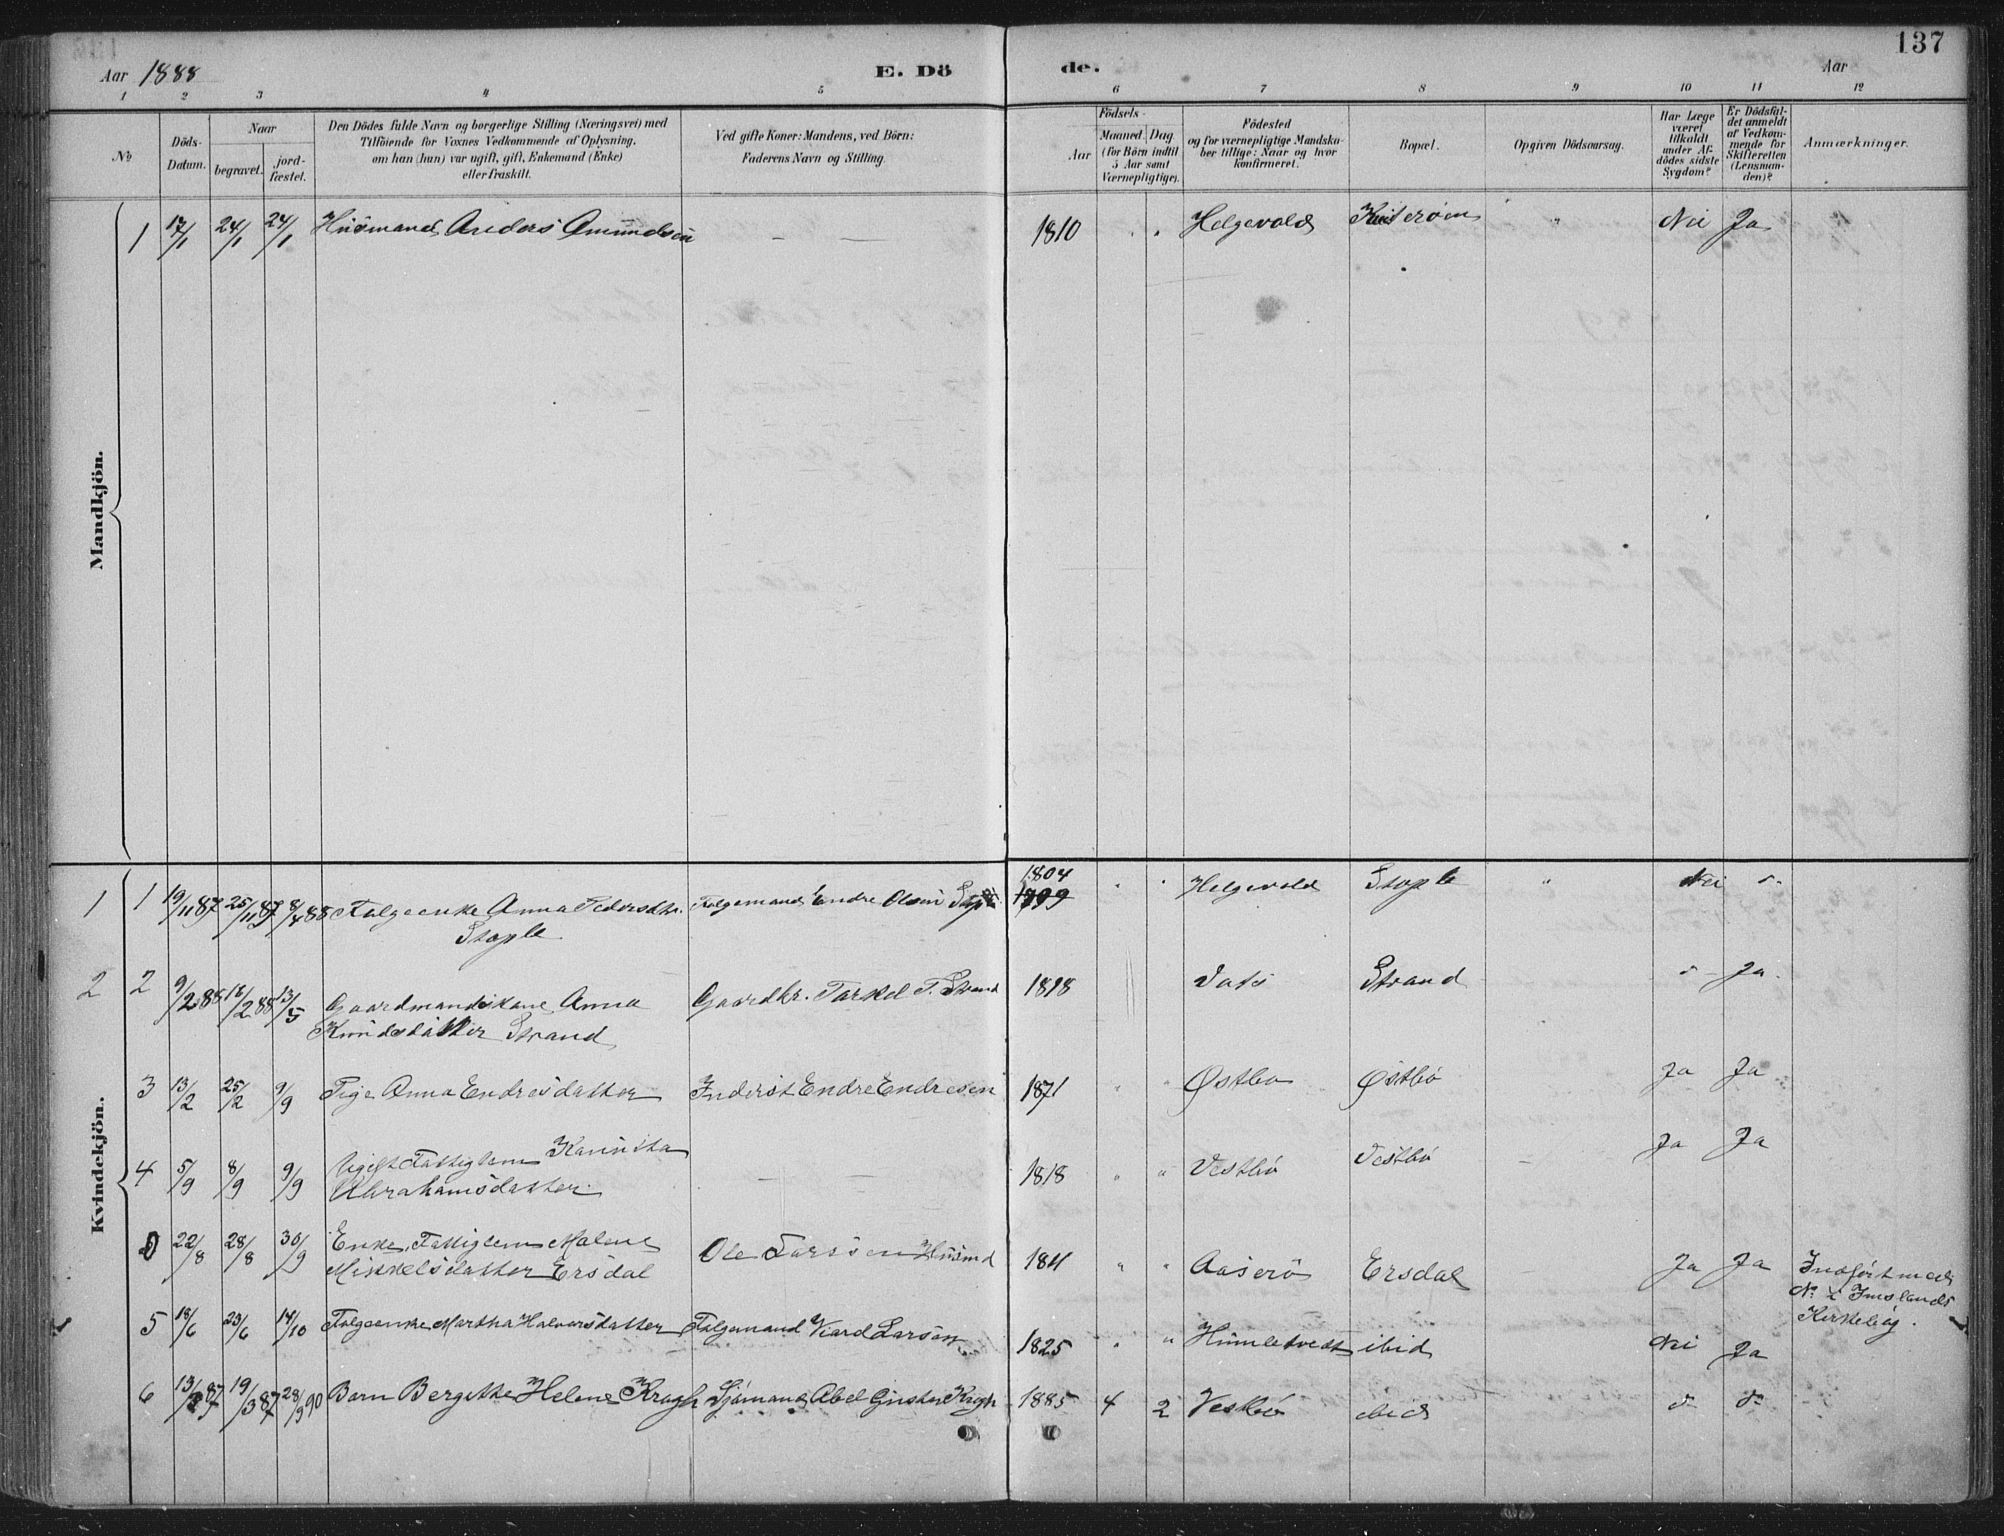 137
Aar 1888 E. Dö de. Aar
1 2 3 4 5 6 7 8 9 10 11 12
No
Döds-Datum.
Naar
begravet.
jord-fæstet.
Den Dödes fulde Navn og borgerlige Stilling (Næringsvei) med
Tilföiende for Voxnes Vedkommende af Oplysning,
om han (hun) var ugift, gift, Enkemand (Enke)
eller fraskilt.
Ved gifte Koner: Mandens, ved Börn:
Faderens Navn og Stilling.
Födsels-
Aar
Maaned. Dag.
(for Börn indtil
5 Aar samt
Værnepligtige).
Födested
og for værnepligtige Mandska-
ber tillige: Naar og hvor
konfirmeret.
Bopæl.
Opgiven Dödsaarsag.
Har Læge
været
tilkaldt
under Af-
dödes sidste
Sygdom?
Er Dödsfal-
det anmeldt
af Vedkom-
mende for
Skifteretten
(Lensman-
den)?
Anmærkninger.
Mandkjön.
1 17/1 24/1 24/1 Husmand Anders Amundsen — — 1810 " " Helgevold " Nei Ja
Kvindekjön.
1 1 19/11 87 25/11 87 8/4 88 Folgeenke Anna Pedersdtr. Folgemand Endre Olsen 1804 " " Helgevold Stople " Nei
Stople 1799
2 2 9/2 88 18/2 88 13/5 Gaardmandskone Anna Gaardbr. Torkel T. Strand 1818 Vats Strand Ja.
Knudsdatter Strand
3 13/2 25/2 9/9 Pige Anna Endresdatter Inderst Endre Endresen 1871 " " Østbø Østbø Ja Ja
4 5/9 8/9 9/9 Ugift Fattiglem — — 1818 " " Vestbø Vestbø — Ja Ja
Abrahamsdatter.
0 22/8 28/8 30/9 Enke, Fattiglem Malene Ole Husmd 1811 " " Aaserø Ersdal — Ja Ja Indført med
Mikkelsdatter Ersdal No i Imslands
Kirkebog.
5 18/6 23/6 14/10 Folgeenke Martha Halvorsdatter Folgemand Larsen 1825 " " Humletvedt ibid Nei Ja
6 19/3 87 28/9 90 Barn Bergitte Helene Kragh Sjømand Abel 1885 4 2 Vestbø ibid